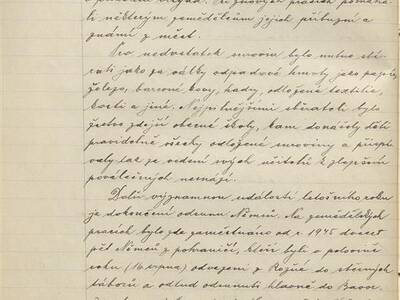 žňových pracích pomáha-
li některým zemědělcům jejich příbuzní a
známí z měst.
Pro nedostatek surovin bylo nutno sbí-
rati jako za války odpadové hmoty jako papír,
železo, barevné kovy, hadry, odložené textilie,
kosti a jiné. Nejpilnějšími sběrateli byla
žactvo zdejší obecné školy, kam donášely děti
pravidelně všecky odložené suroviny a přispí-
valy tak za vedení svých učitelů k zlepšení
poválečných nesnází.
Další významnou událostí letošního roku
je dokončení odsunu Němců. Na zemědělských
pracích bylo zde zaměstnáno od r. 1945 dvacet
pět Němců z pohraničí, kteří byli v polovině
roku (16. srpna) odvezeni z Rožné do sběrných
táborů a odtud odsunuti hlavně do Bavor-